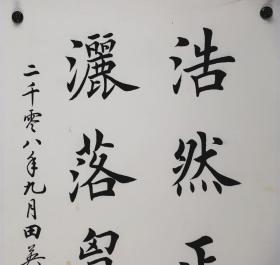 浩然正
灑落胸
二千零八年九月田英